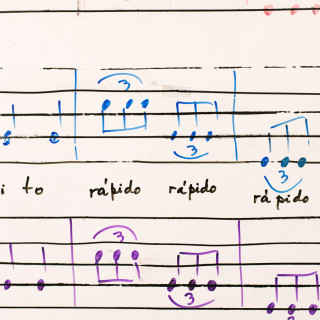 3
3
3
i to rápido rápido rápido
3
3
3